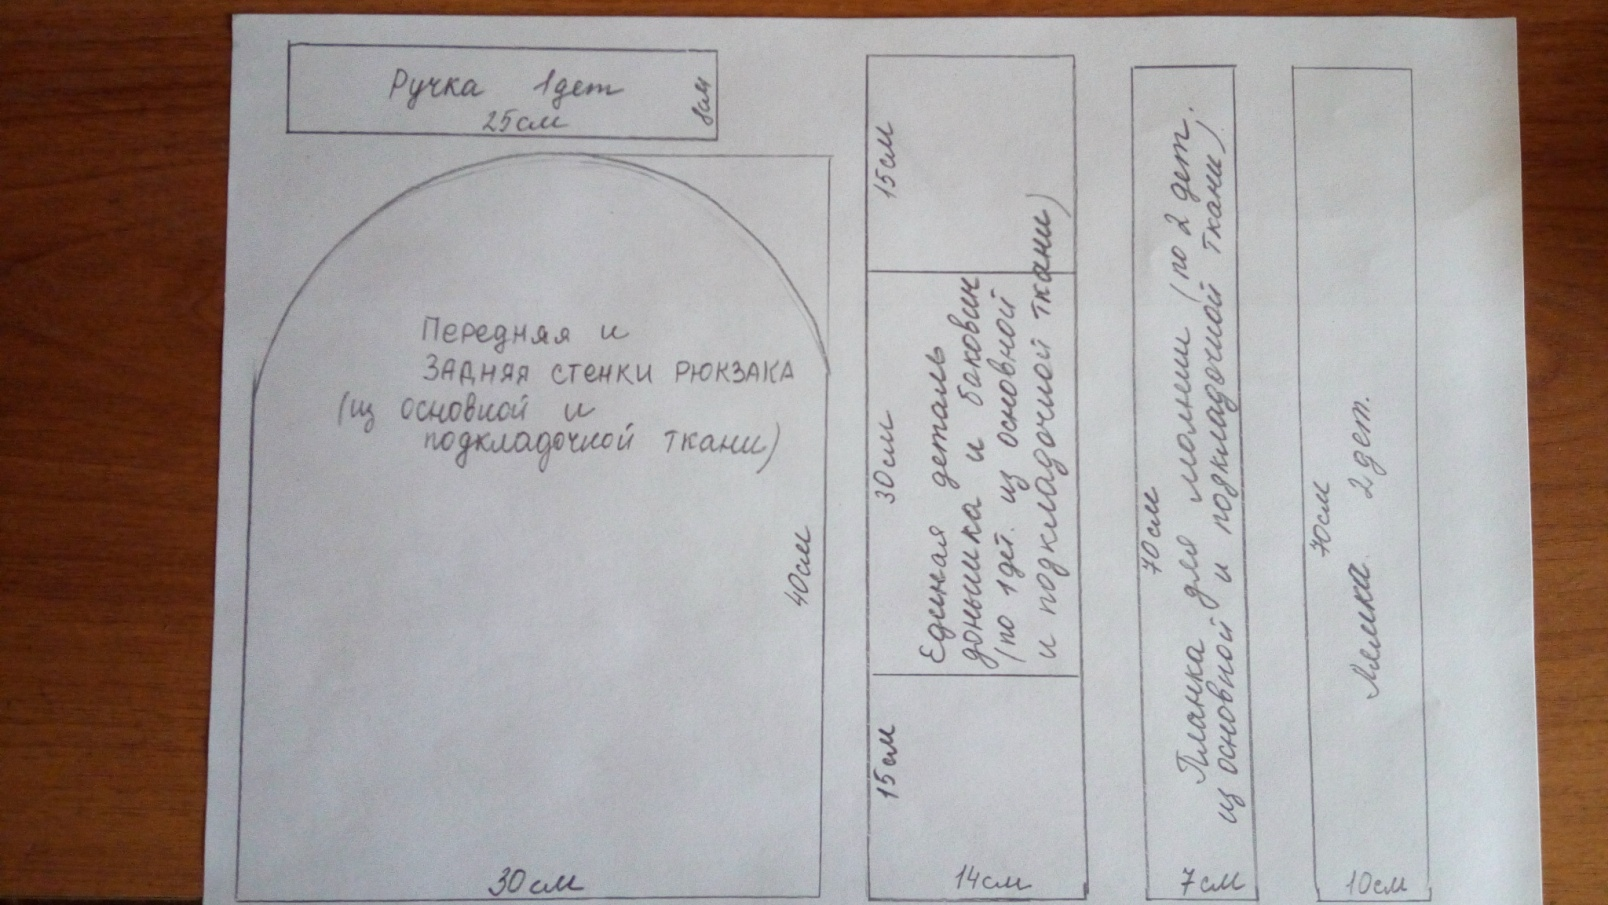 Ручка 1дет
25см
8см
Передняя и
ЗАДНЯЯ СТЕНКИ РЮКЗАКА
(из основной и
подкладочной ткани)
40см
30см
15см
30см
15см
Единая деталь
донышка и боковин
(по 1дет. из основной
и подкладочной ткани)
14см
70см
Планка для молнии (по 2 дет.
из основной и подкладочной ткани).
7см
70см
Лямка. 2дет.
10см